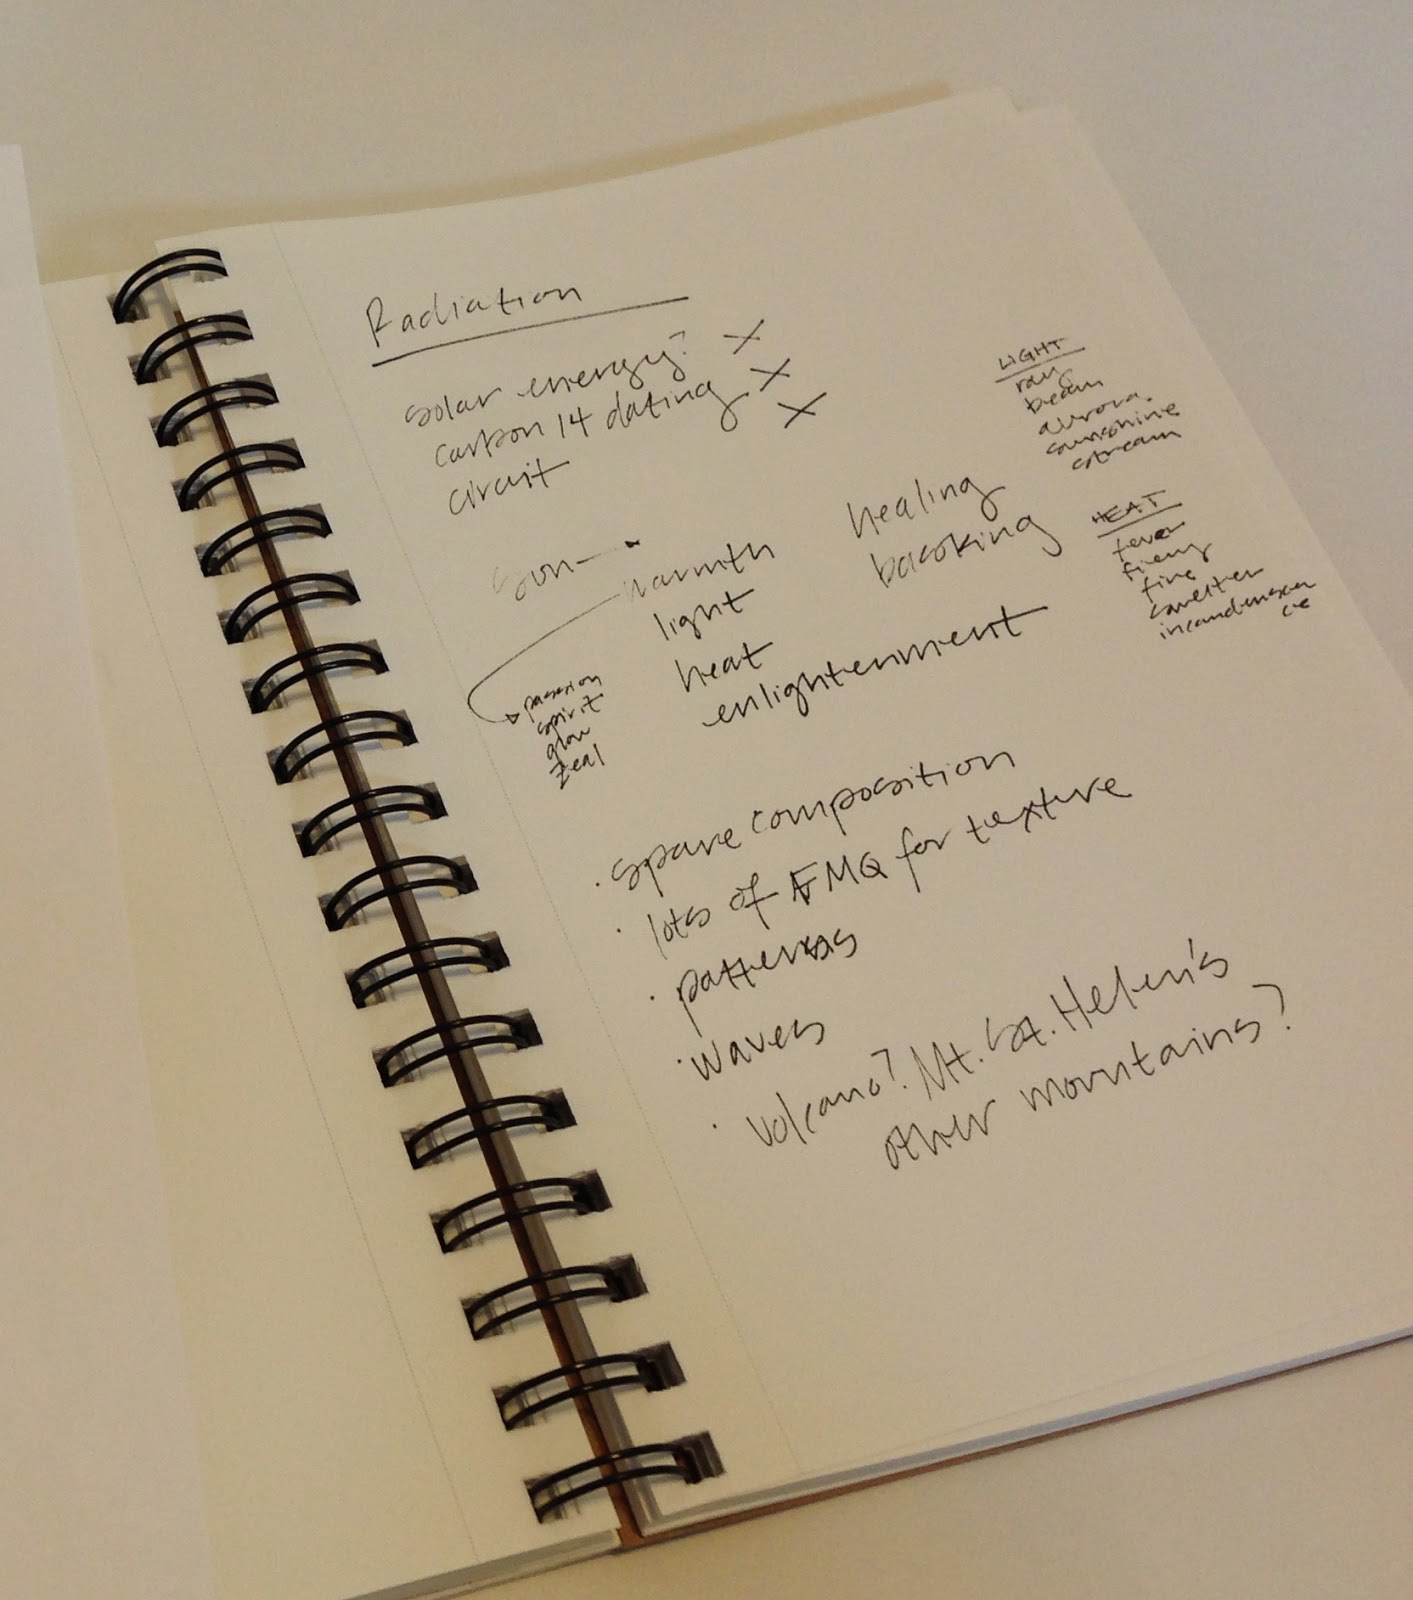 Radiation
solar energy? X
carbon 14 dating X
circuit X
Sun — warmth
light
heat
enlightenment
healing
basking
passion
spirit
glow
zeal
LIGHT
ray
beam
aurora
sunshine
stream
HEAT
fever
fiery
fire
swelter
incandescen
ce
· spare composition
· lots of FMQ for texture
· patterns
· waves
· volcano? Mt. St. Helen's
other mountains?